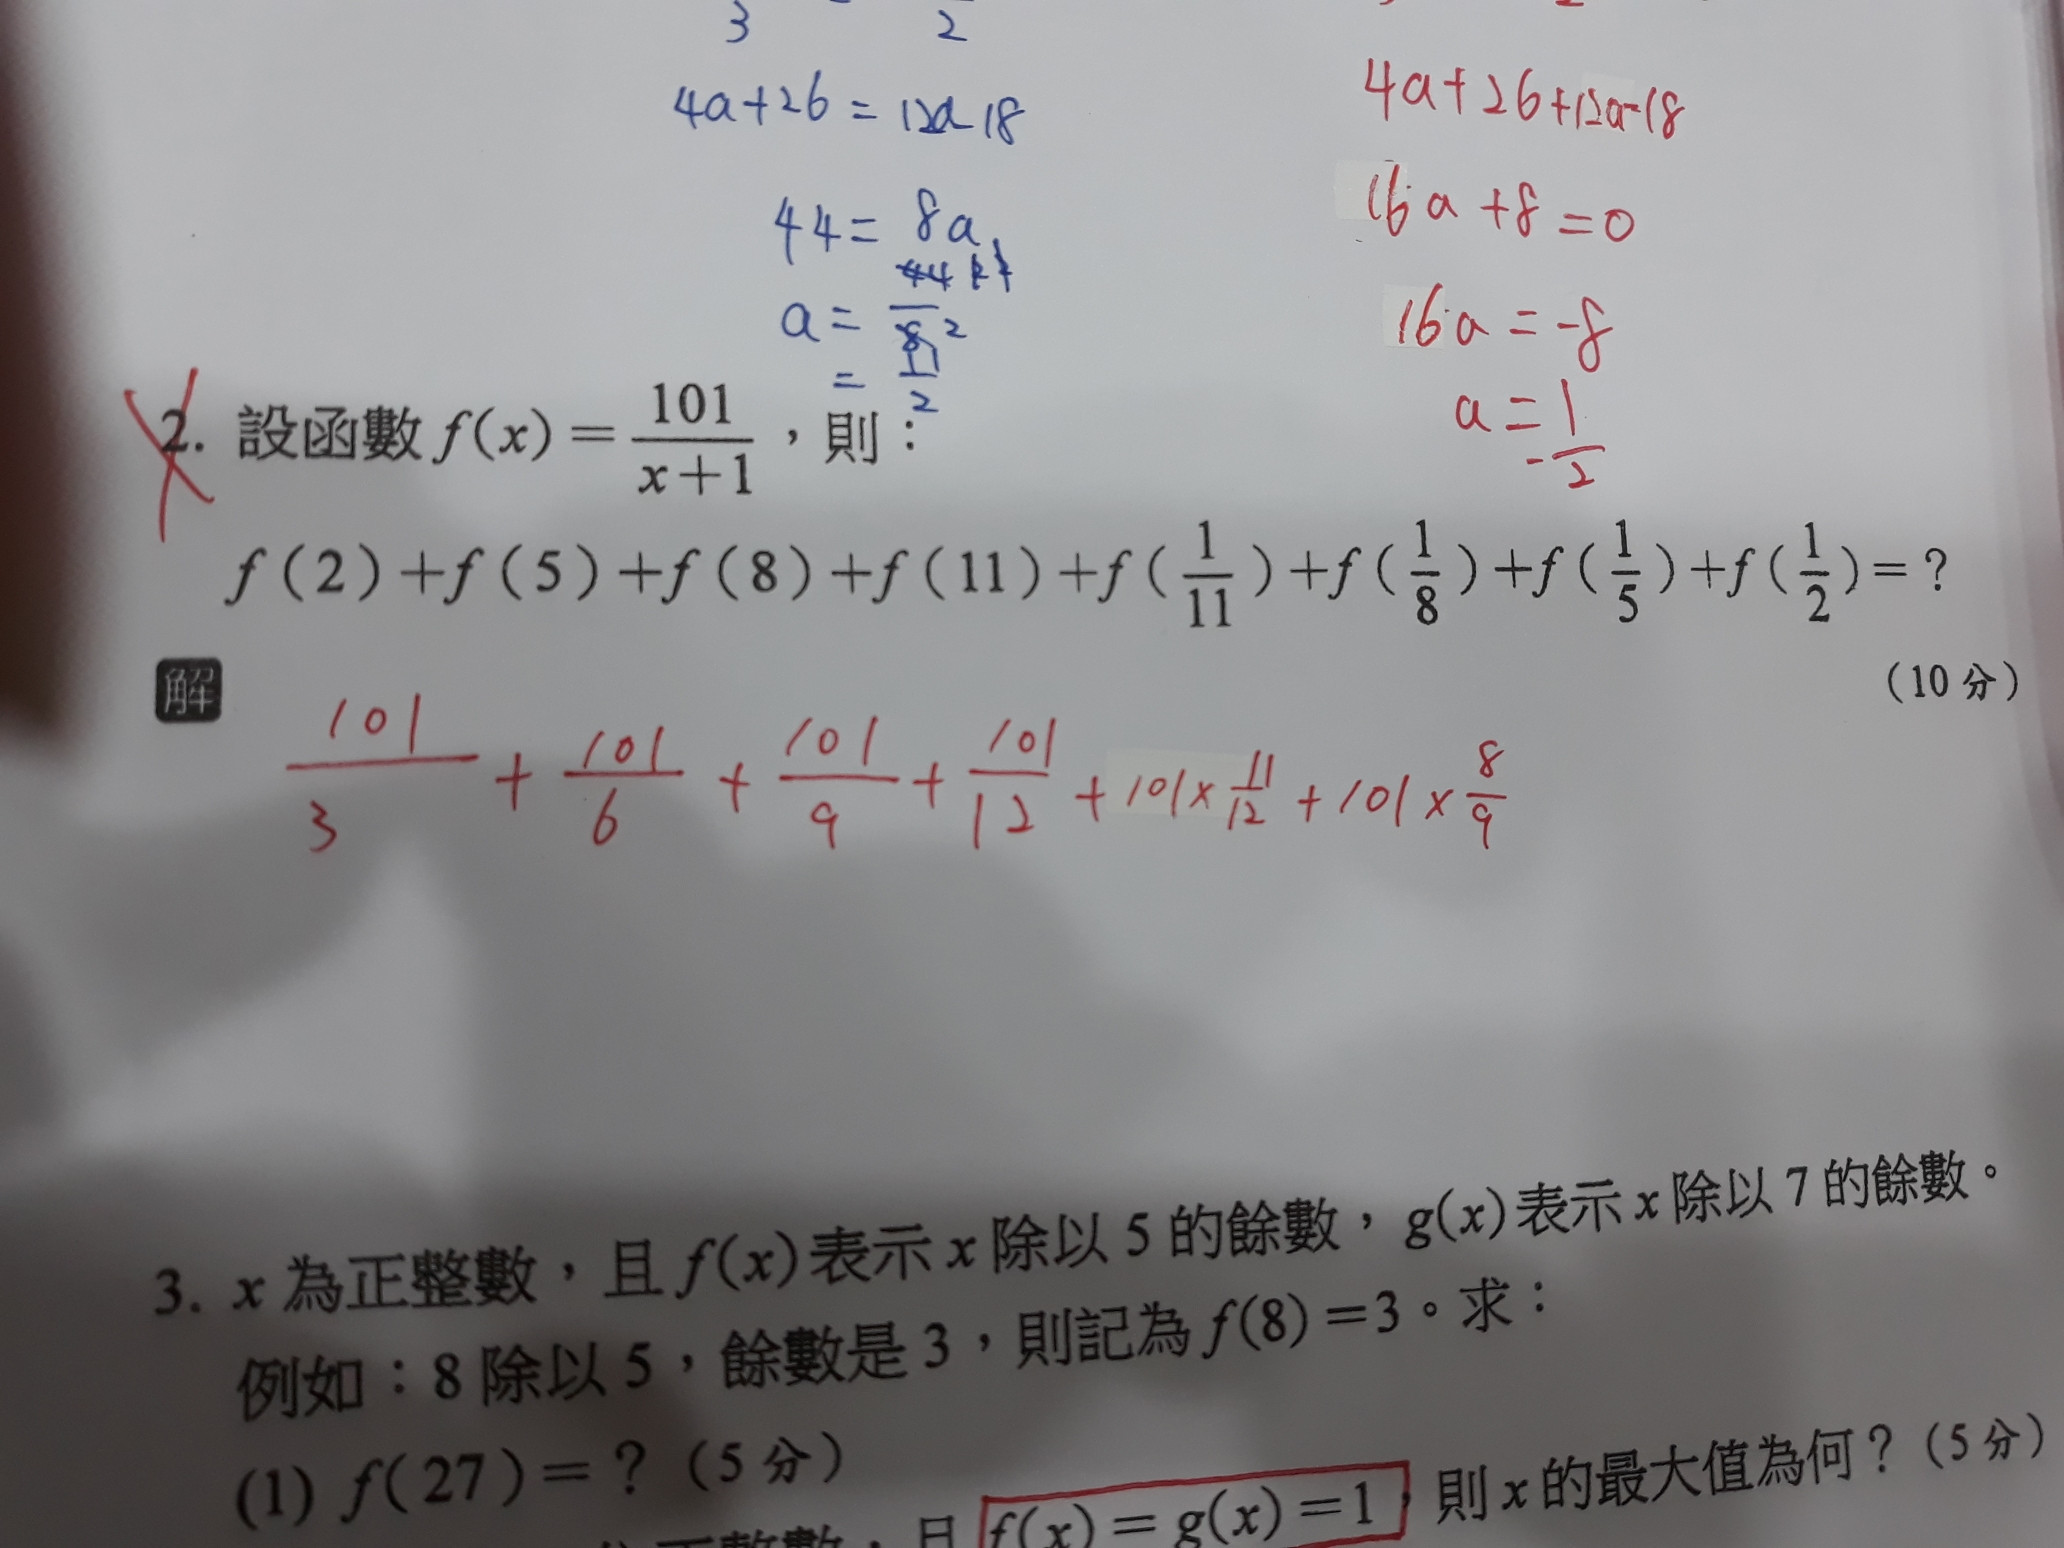 3 2
4a+26 = 12a-18 4a+26+12a-18
44 = 8a 16a+8=0
a = 44/8 2 16a = -8
= 11/2 a = -1/2
2. 設函數 f(x) = 101/(x+1)，則：
f(2)+f(5)+f(8)+f(11)+f(1/11)+f(1/8)+f(1/5)+f(1/2)=？
(10 分)
解
101/3 + 101/6 + 101/9 + 101/12 + 101×11/12 + 101×8/9
3. x 為正整數，且 f(x) 表示 x 除以 5 的餘數，g(x) 表示 x 除以 7 的餘數。
例如：8 除以 5，餘數是 3，則記為 f(8)=3。求：
(1) f(27)=？(5 分)
正整數，且 f(x)=g(x)=1，則 x 的最大值為何？(5 分)